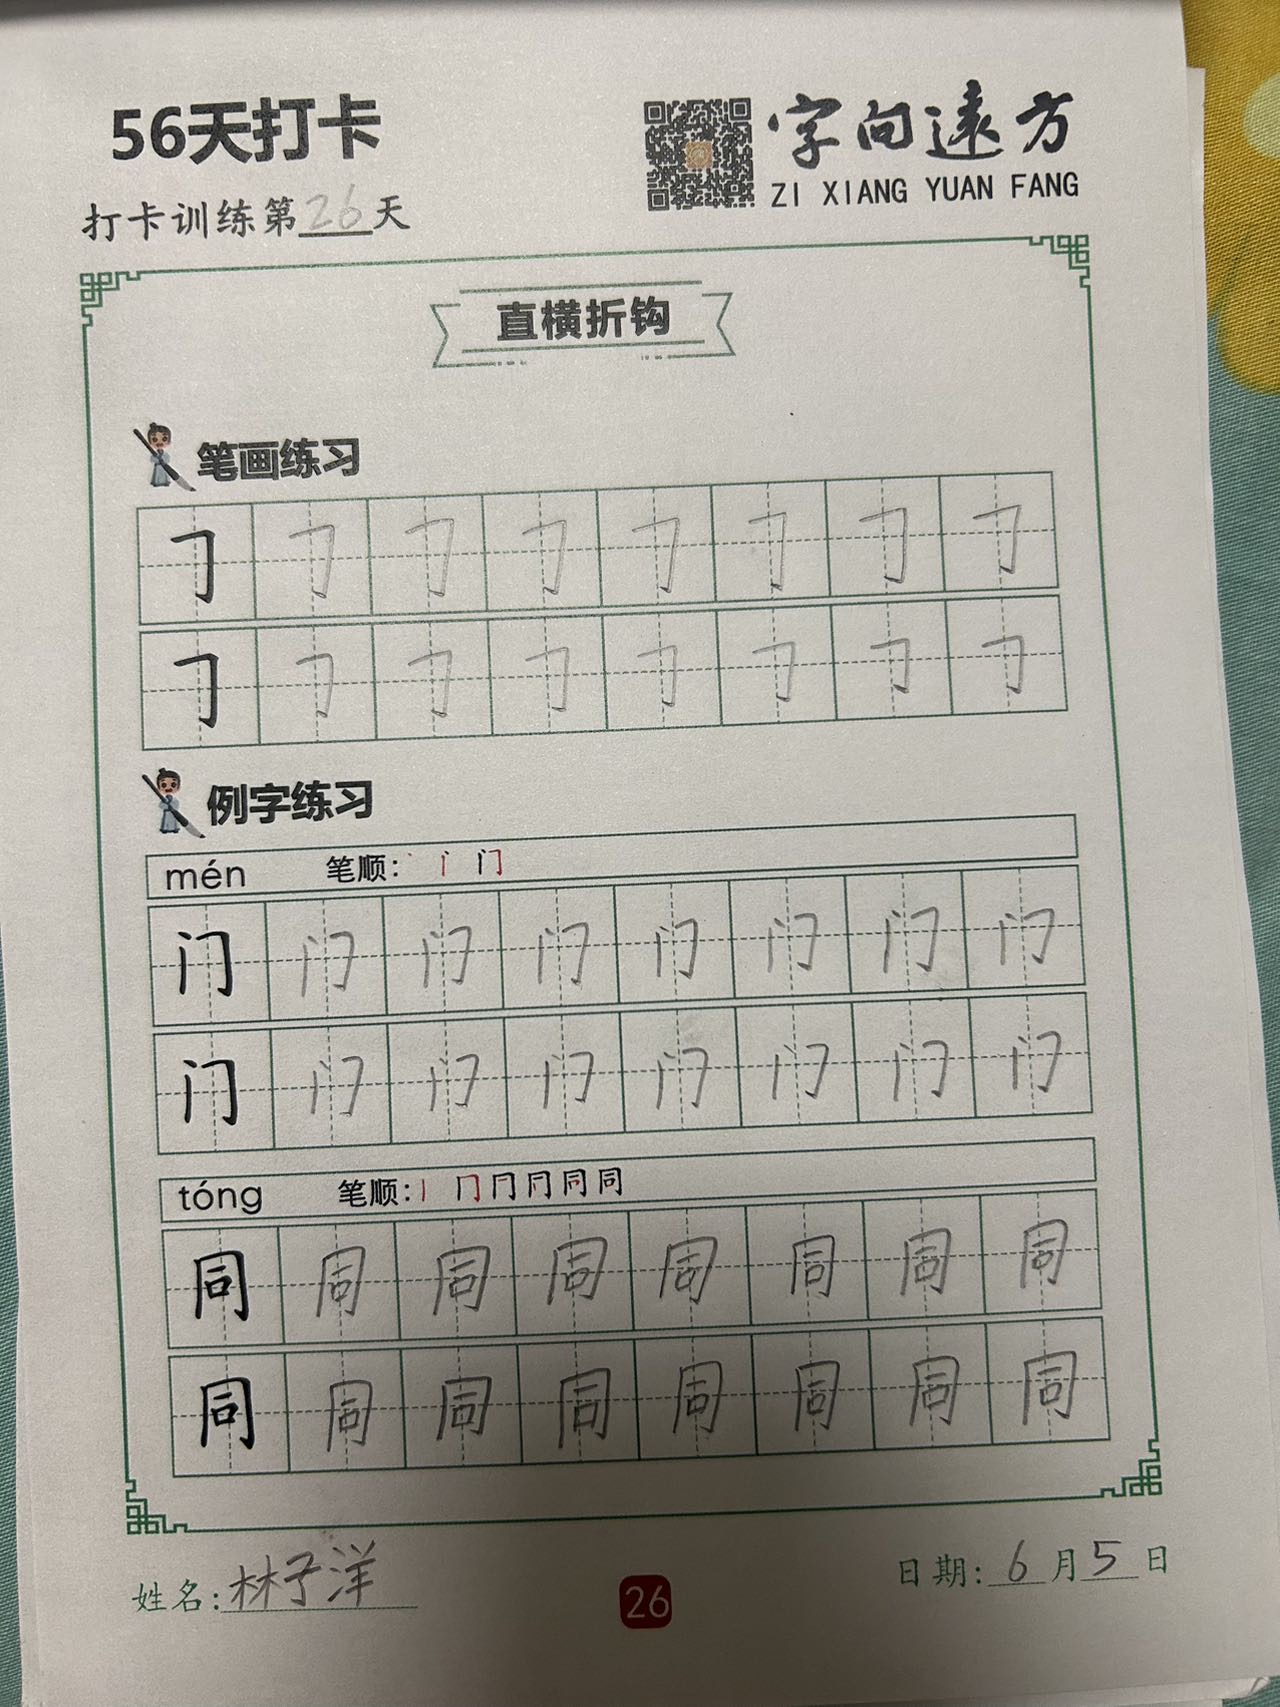 56天打卡
字向遠方
ZI XIANG YUAN FANG
打卡训练第26天
直横折钩
笔画练习
𠃌 𠃌 𠃌 𠃌 𠃌 𠃌 𠃌 𠃌
𠃌 𠃌 𠃌 𠃌 𠃌 𠃌 𠃌 𠃌
例字练习
mén 笔顺: 丶 门
门 门 门 门 门 门 门 门
门 门 门 门 门 门 门 门
tóng 笔顺: 丨 冂 同 同
同 同 同 同 同 同 同 同
同 同 同 同 同 同 同 同
姓名:林子洋
26
日期:6月5日